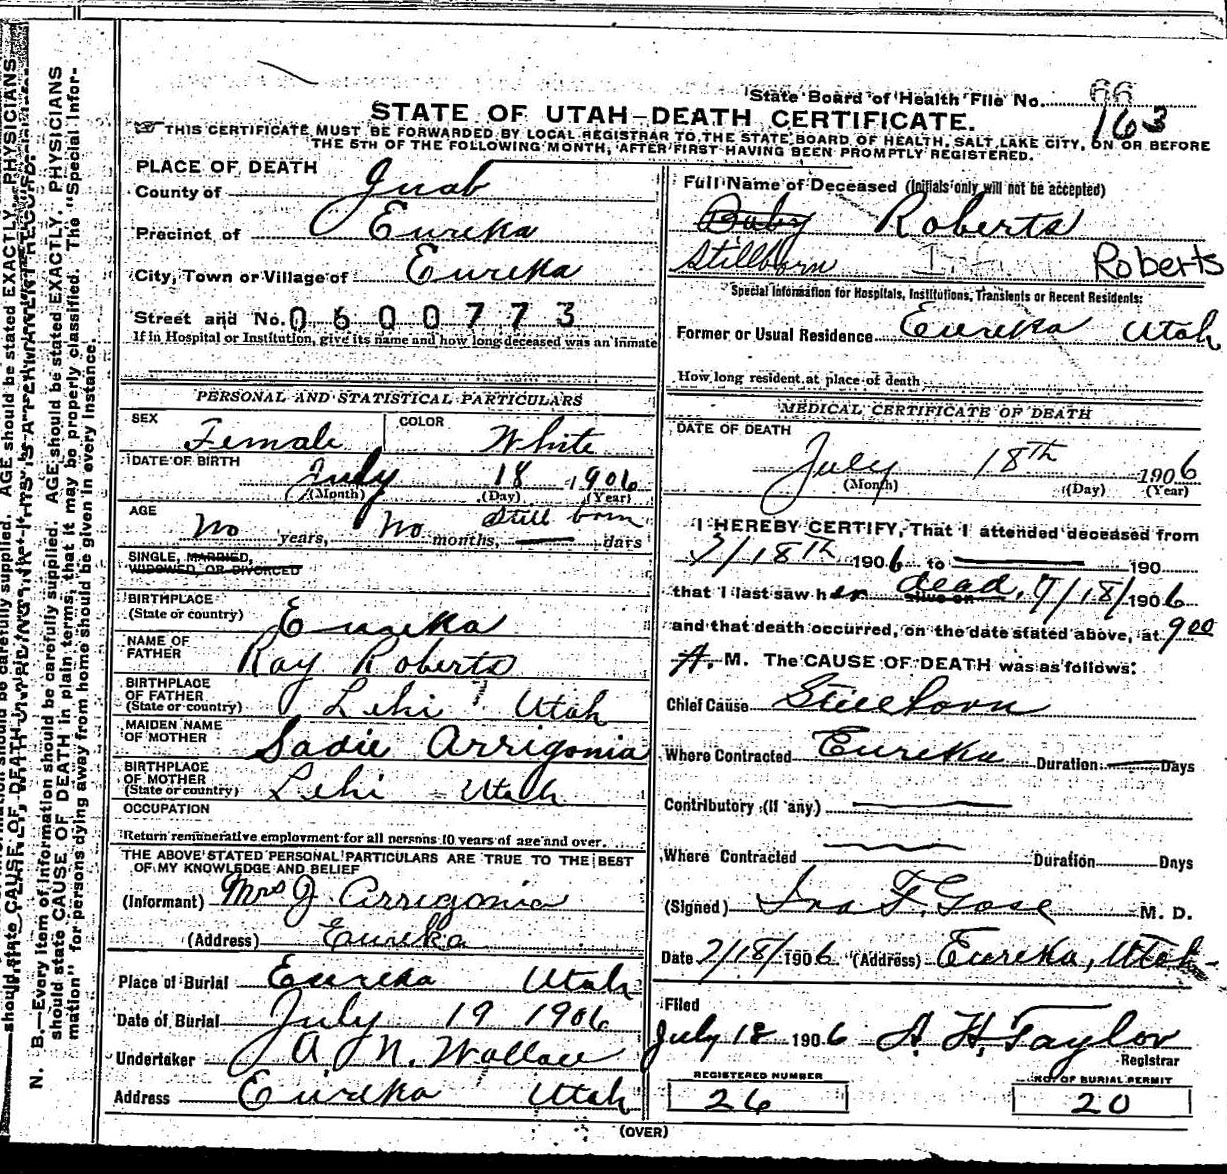 State Board of Health File No. 66
163
STATE OF UTAH—DEATH CERTIFICATE.
THIS CERTIFICATE MUST BE FORWARDED BY LOCAL REGISTRAR TO THE STATE BOARD OF HEALTH, SALT LAKE CITY, ON OR BEFORE
THE 5TH OF THE FOLLOWING MONTH, AFTER FIRST HAVING BEEN PROMPTLY REGISTERED.
PLACE OF DEATH
County of Juab
Precinct of Eureka
City, Town or Village of Eureka
Street and No. 0600773
If in Hospital or Institution, give its name and how long deceased was an inmate
PERSONAL AND STATISTICAL PARTICULARS
SEX Female COLOR White
DATE OF BIRTH July 18 1906
(Month) (Day) (Year)
Still born
AGE No years, No months, — days
SINGLE, MARRIED,
WIDOWED, OR DIVORCED
BIRTHPLACE
(State or country) Eureka
NAME OF
FATHER Ray Roberts
BIRTHPLACE
OF FATHER
(State or country) Lehi Utah
MAIDEN NAME
OF MOTHER Sadie Arrigonia
BIRTHPLACE
OF MOTHER
(State or country) Lehi Utah
OCCUPATION
Return remunerative employment for all persons 10 years of age and over.
THE ABOVE STATED PERSONAL PARTICULARS ARE TRUE TO THE BEST
OF MY KNOWLEDGE AND BELIEF
(Informant) Mrs J Arrigonia
(Address) Eureka
Place of Burial Eureka Utah
Date of Burial July 19 1906
Undertaker A N. Wallace
Address Eureka Utah
Full Name of Deceased (Initials only will not be accepted)
Baby Roberts
Stillborn Roberts
Special Information for Hospitals, Institutions, Transients or Recent Residents:
Former or Usual Residence Eureka Utah
How long resident at place of death
MEDICAL CERTIFICATE OF DEATH
DATE OF DEATH
July 18th 1906
(Month) (Day) (Year)
I HEREBY CERTIFY, That I attended deceased from
7/18th 1906 to — 190
that I last saw her alive on dead, 7/18/1906
and that death occurred, on the date stated above, at 9 00
A. M. The CAUSE OF DEATH was as follows:
Chief Cause Stillborn
Where Contracted Eureka Duration — Days
Contributory (if any) —
Where Contracted — Duration Days
(Signed) Ira F. Gose M. D.
Date 7/18/1906 (Address) Eureka, Utah
Filed
July 18 1906 A. H. Taylor
Registrar
REGISTERED NUMBER
26
NO. OF BURIAL PERMIT
20
(OVER)
N. B.—Every item of information should be carefully supplied. AGE should be stated EXACTLY. PHYSICIANS
should state CAUSE OF DEATH in plain terms, that it may be properly classified. The "Special Infor-
mation" for persons dying away from home should be given in every instance.